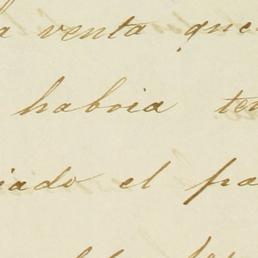 a venta que
habia te
iado el pa